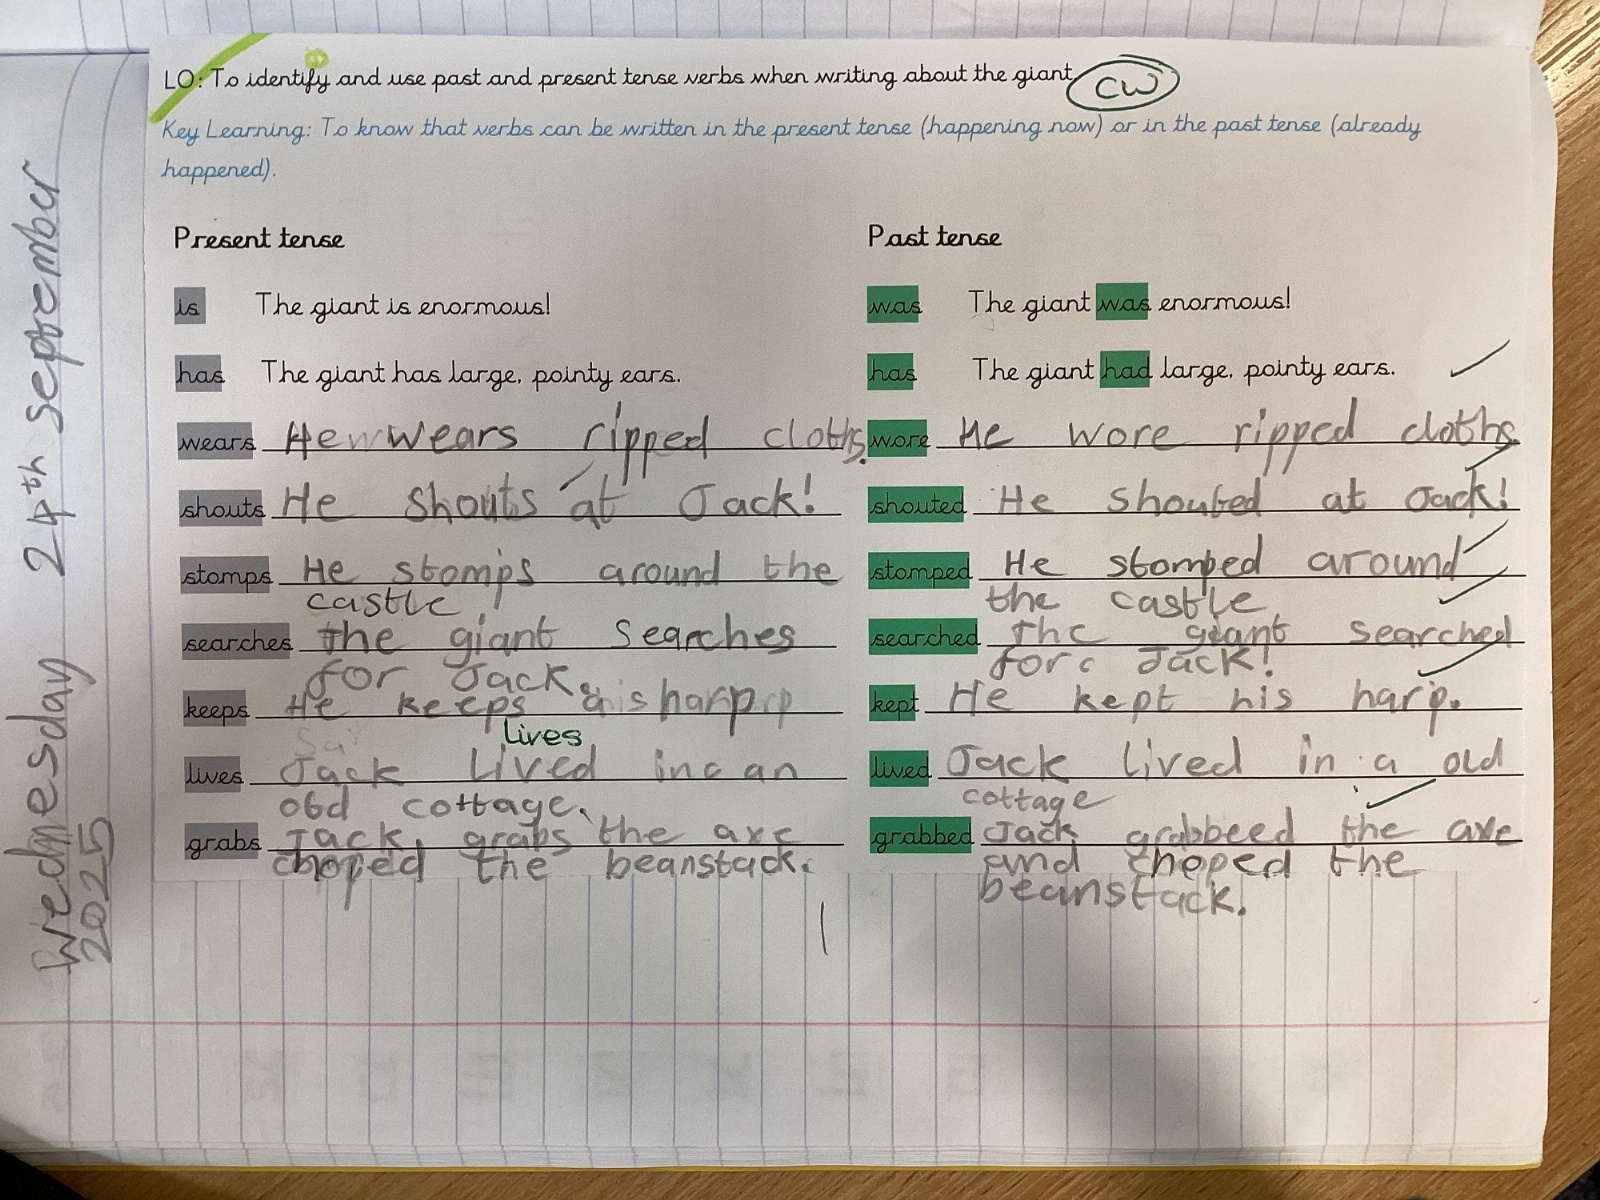 Wednesday 24th september
2025
LO: To identify and use past and present tense verbs when writing about the giant.
CW
Key Learning: To know that verbs can be written in the present tense (happening now) or in the past tense (already
happened).
Present tense
is The giant is enormous!
has The giant has large, pointy ears.
wears He wears ripped cloths.
shouts He shouts at Jack!
stomps He stomps around the
castle
searches the giant searches
for Jack.
keeps He keeps his harp
lives
lives Jack lived in an
old cottage.
grabs Jack grabs the axe
choped the beanstack.
Past tense
was The giant was enormous!
has The giant had large, pointy ears.
wore He wore ripped cloths
shouted He shouted at Jack!
stomped He stomped around
the castle
searched The giant searched
for Jack!
kept He kept his harp.
lived Jack lived in a old
cottage
grabbed Jack grabbeed the axe
and choped the
beanstack.